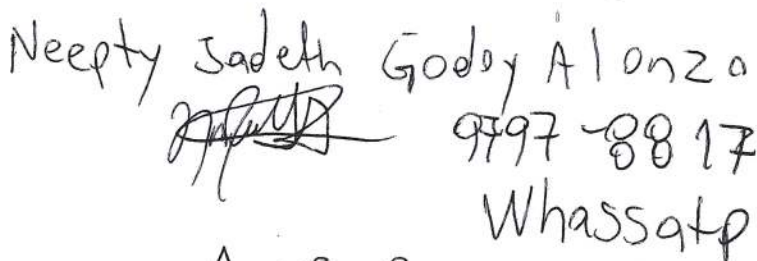 Neepty Jadeth Godoy Alonzo
9797-8817
Whassatp